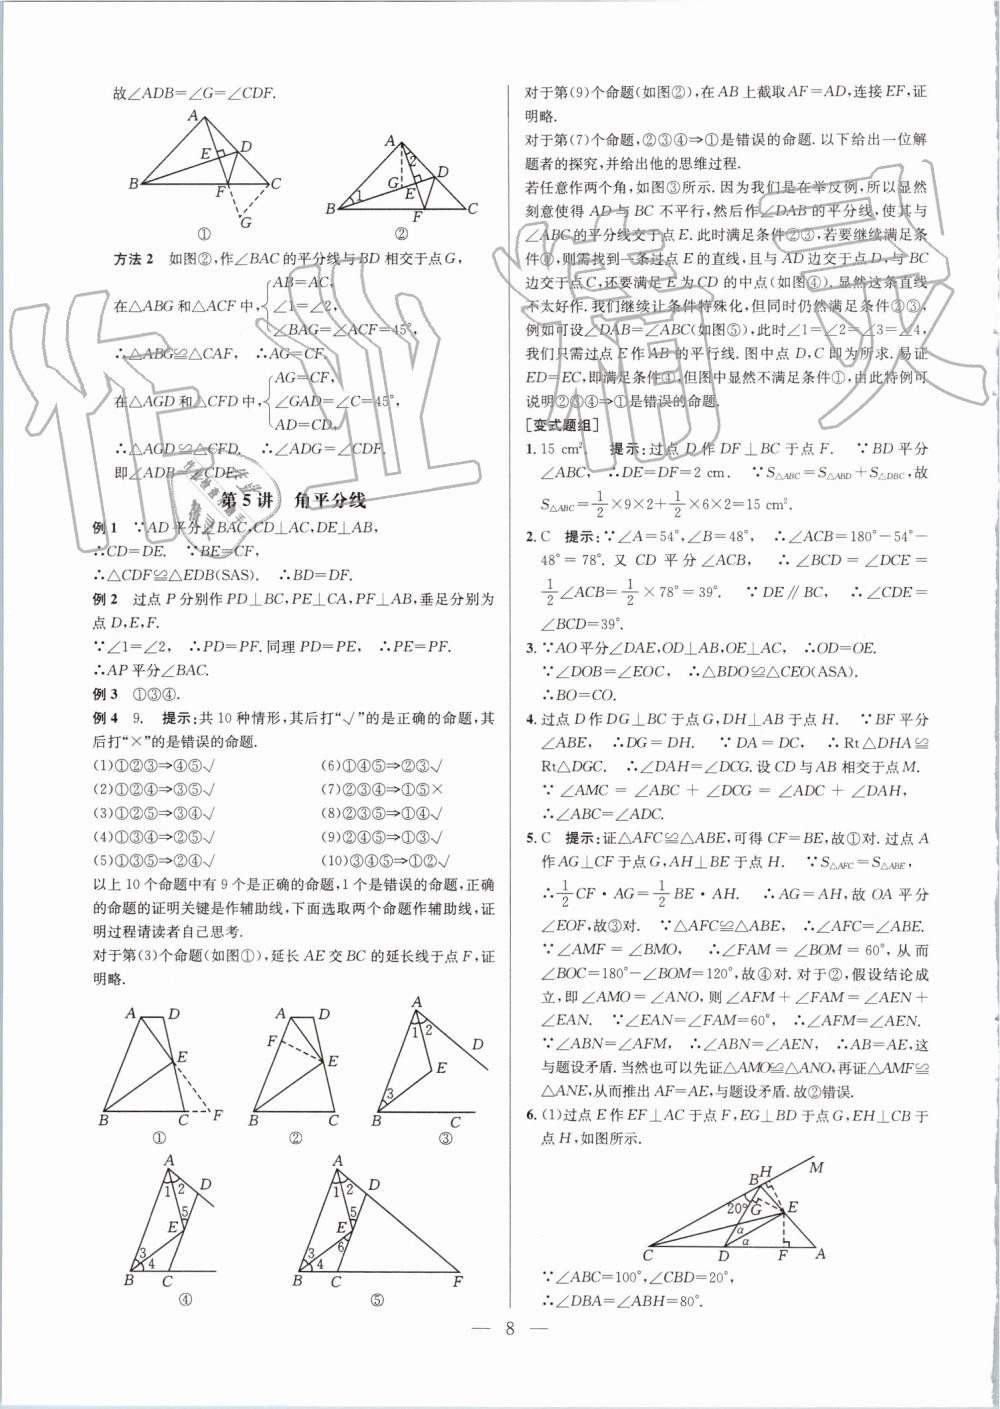 故∠ADB=∠G=∠CDF.
A
E
D
B
F
C
G
①
A
2
D
G
E
1
B
F
C
②
方法2 如图②,作∠BAC的平分线与BD相交于点G,
在△ABG和△ACF中,
AB=AC,
∠1=∠2,
∠BAG=∠ACF=45°,
∴△ABG≌△CAF, ∴AG=CF.
在△AGD和△CFD中,
AG=CF,
∠GAD=∠C=45°,
AD=CD,
∴△AGD≌△CFD. ∴∠ADG=∠CDF.
即∠ADB=∠CDE.
第5讲 角平分线
例1 ∵AD平分∠BAC,CD⊥AC,DE⊥AB,
∴CD=DE. ∵BE=CF,
∴△CDF≌△EDB(SAS). ∴BD=DF.
例2 过点P分别作PD⊥BC,PE⊥CA,PF⊥AB,垂足分别为
点D,E,F.
∵∠1=∠2, ∴PD=PF.同理PD=PE. ∴PE=PF.
∴AP平分∠BAC.
例3 ①③④.
例4 9. 提示:共10种情形,其后打“√”的是正确的命题,其
后打“×”的是错误的命题.
(1)①②③⇒④⑤√ (6)①④⑤⇒②③√
(2)①②④⇒③⑤√ (7)②③④⇒①⑤×
(3)①②⑤⇒③④√ (8)②③⑤⇒①④√
(4)①③④⇒②⑤√ (9)②④⑤⇒①③√
(5)①③⑤⇒②④√ (10)③④⑤⇒①②√
以上10个命题中有9个是正确的命题,1个是错误的命题,正确
的命题的证明关键是作辅助线,下面选取两个命题作辅助线,证
明过程请读者自己思考.
对于第(3)个命题(如图①),延长AE交BC的延长线于点F,证
明略.
A D
E
B C F
①
A D
F
E
B C
②
A
1 2
D
E
3
B C
③
A
1 2
D
5
E
3
4
B C
④
A
1 2
D
5
E
6
3
4
B C F
⑤
对于第(9)个命题(如图②),在AB上截取AF=AD,连接EF,证
明略.
对于第(7)个命题,②③④⇒①是错误的命题.以下给出一位解
题者的探究,并给出他的思维过程.
若任意作两个角,如图③所示.因为我们是在举反例,所以显然
刻意使得AD与BC不平行,然后作∠DAB的平分线,使其与
∠ABC的平分线交于点E.此时满足条件②③,若要继续满足条件
④,则需找到一条过点E的直线,且与AD边交于点D,与BC
边交于点C,还要满足E为CD的中点(如图④).显然这条直线
不太好作.我们继续让条件特殊化,但同时仍然满足条件②③,
例如可设∠DAB=∠ABC(如图⑤),此时∠1=∠2=∠3=∠4,
我们只需过点E作AB的平行线.图中点D,C即为所求.易证
ED=EC,即满足条件④,但图中显然不满足条件①,由此特例可
说明②③④⇒①是错误的命题.
[变式题组]
1. 15 cm². 提示:过点D作DF⊥BC于点F. ∵BD平分
∠ABC, ∴DE=DF=2 cm. ∵S△ABC=S△ABD+S△DBC,故
S△ABC=1/2×9×2+1/2×6×2=15 cm².
2. C 提示:∵∠A=54°,∠B=48°, ∴∠ACB=180°-54°-
48°=78°.又CD平分∠ACB, ∴∠BCD=∠DCE=
1/2∠ACB=1/2×78°=39°. ∵DE∥BC, ∴∠CDE=
∠BCD=39°.
3. ∵AO平分∠DAE,OD⊥AB,OE⊥AC, ∴OD=OE.
∵∠DOB=∠EOC, ∴△BDO≌△CEO(ASA).
∴BO=CO.
4. 过点D作DG⊥BC于点G,DH⊥AB于点H. ∵BF平分
∠ABE, ∴DG=DH. ∵DA=DC, ∴Rt△DHA≌
Rt△DGC. ∴∠DAH=∠DCG.设CD与AB相交于点M.
∵∠AMC=∠ABC+∠DCG=∠ADC+∠DAH,
∴∠ABC=∠ADC.
5. C 提示:证△AFC≌△ABE,可得CF=BE,故①对.过点A
作AG⊥CF于点G,AH⊥BE于点H. ∵S△AFC=S△ABE,
∴1/2CF·AG=1/2BE·AH. ∴AG=AH,故OA平分
∠EOF,故③对. ∵△AFC≌△ABE, ∴∠AFC=∠ABE.
∵∠AMF=∠BMO, ∴∠FAM=∠BOM=60°,从而
∠BOC=180°-∠BOM=120°,故④对.对于②,假设结论成
立,即∠AMO=∠ANO,则∠AFM+∠FAM=∠AEN+
∠EAN. ∵∠EAN=∠FAM=60°, ∴∠AFM=∠AEN.
∵∠ABN=∠AFM, ∴∠ABN=∠AEN, ∴AB=AE,这
与题设矛盾.当然也可以先证△AMO≌△ANO,再证△AMF≌
△ANE,从而推出AF=AE,与题设矛盾.故②错误.
6. (1)过点E作EF⊥AC于点F,EG⊥BD于点G,EH⊥CB于
点H,如图所示.
M
H
B
20°
G
E
α
α
C D F A
∵∠ABC=100°,∠CBD=20°,
∴∠DBA=∠ABH=80°.
— 8 —
作业精灵